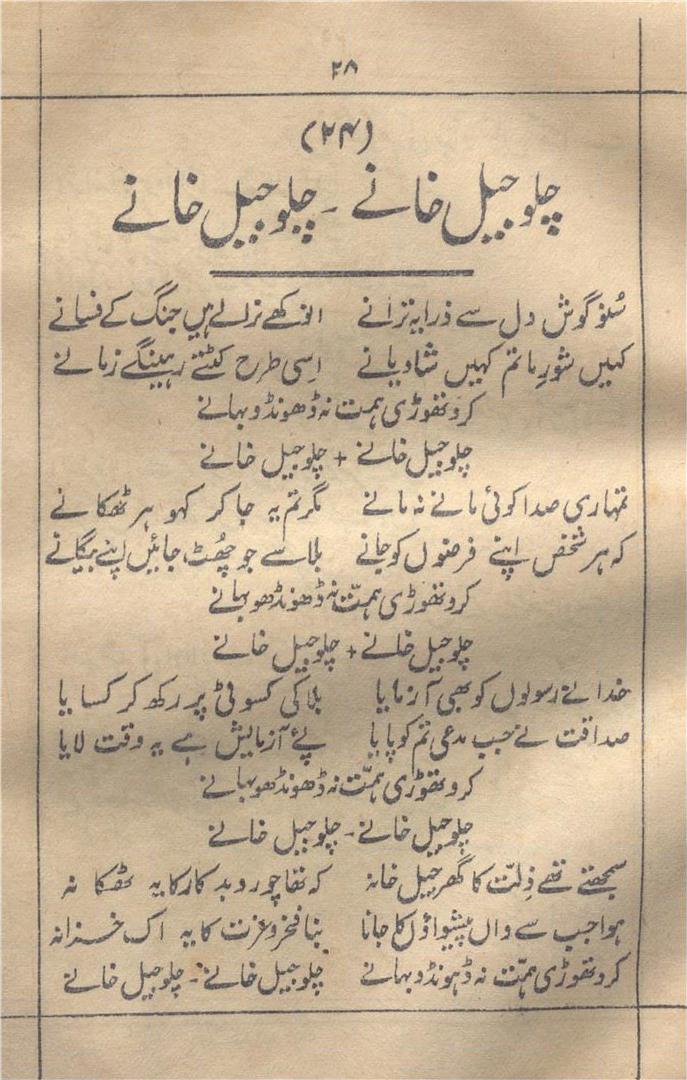 ۲۸
(۲۴)
چلو جیل خانے - چلو جیل خانے
سُنو گوش دل سے ذرا یہ ترانے انوکھے نرالے ہیں جنگ کے فسانے
کہیں شورِ ماتم کہیں شادیانے اِسی طرح کٹتے رہینگے زمانے
کرو تھوڑی ہمت نہ ڈھونڈو بہانے
چلو جیل خانے + چلو جیل خانے
تمہاری صدا کوئی مانے نہ مانے مگر تم یہ جا کر کہو ہر ٹھکانے
کہ ہر شخص اپنے فرضوں کو جانے بلا سے جو چھُٹ جائیں اپنے بیگانے
کرو تھوڑی ہمّت نہ ڈھونڈھو بہانے
چلو جیل خانے + چلو جیل خانے
خدا نے رسولوں کو بھی آزمایا بلا کی کسوٹی پر رکھ کر کسایا
صداقت نے جب مدعی تم کو پایا پئے آزمایش ہے یہ وقت لایا
کرو تھوڑی ہمّت نہ ڈھونڈھو بہانے
چلو جیل خانے - چلو جیل خانے
سمجھتے تھے ذِلّت کا گھر جیل خانہ کہ تھا چور و بدکار کا یہ ٹھکانہ
ہوا جب سے واں پیشواؤں کا جانا بنا فخر و عزت کا یہ اک خزانہ
کرو تھوڑی ہمّت نہ ڈہونڈو بہانے چلو جیل خانے - چلو جیل خانے